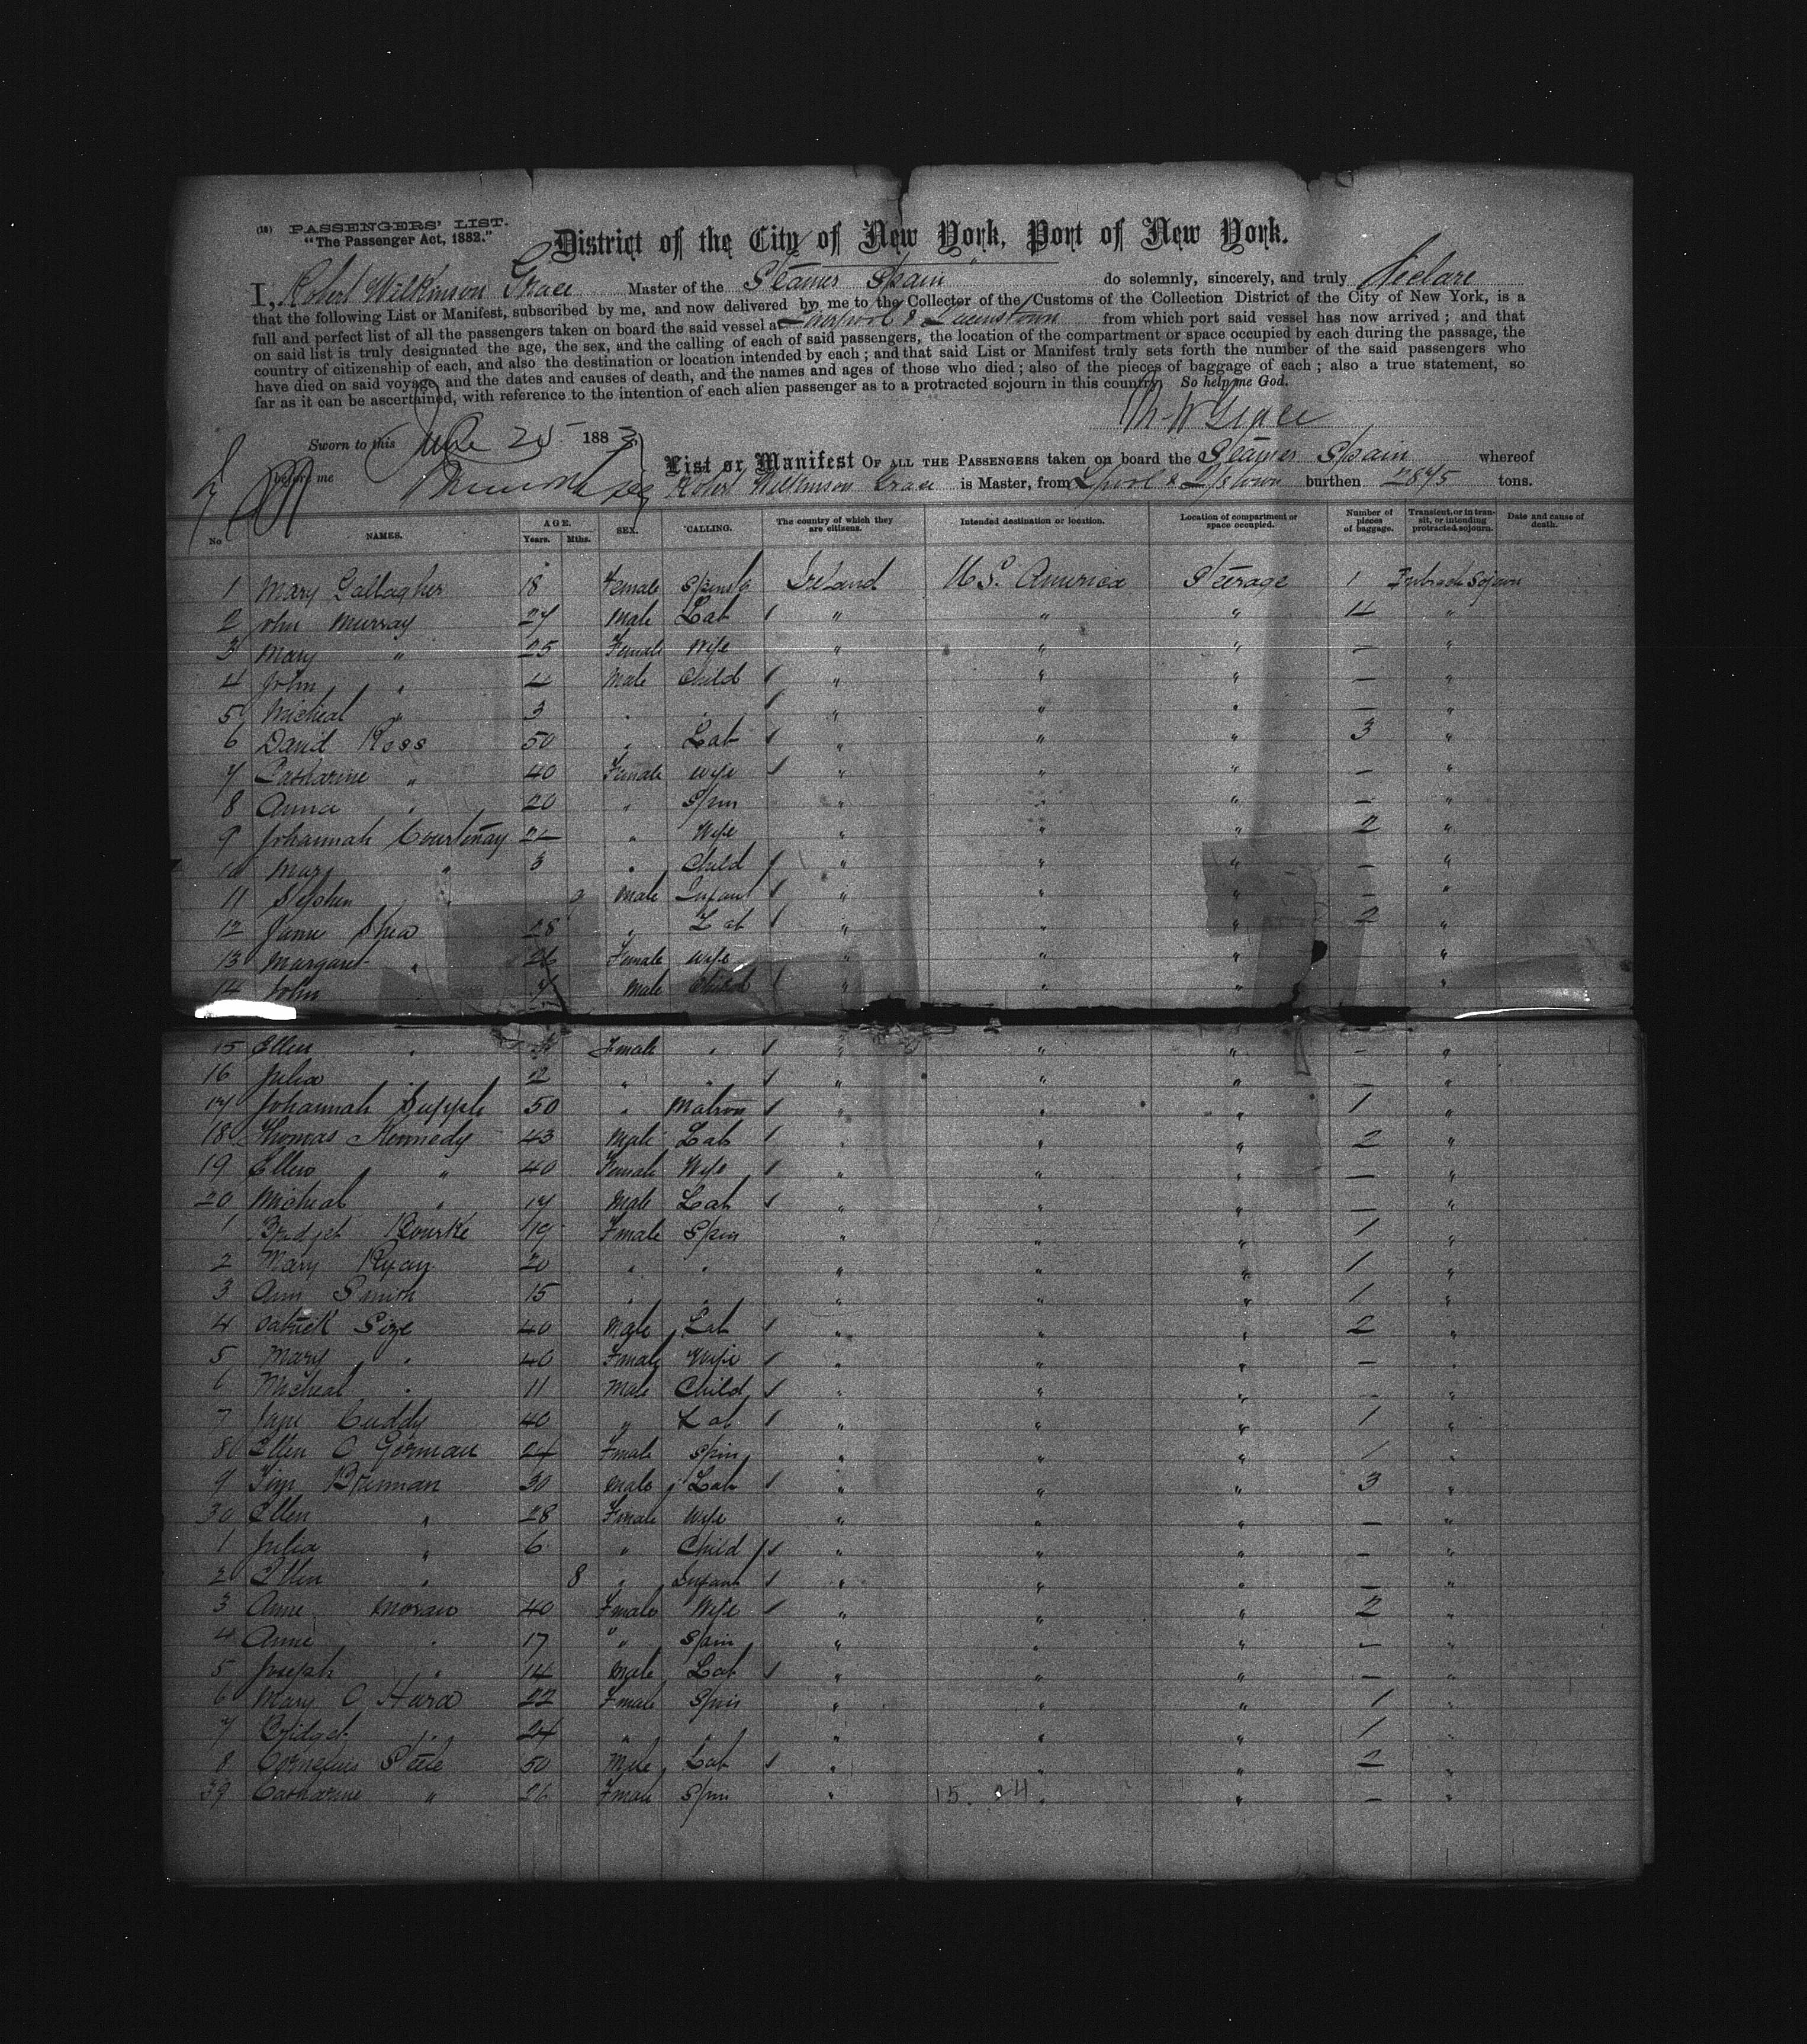 (18) PASSENGERS' LIST.
"The Passenger Act, 1882."
District of the City of New York, Port of New York.
I, Robert Wilkinson Grace Master of the Steamer Spain do solemnly, sincerely, and truly declare
that the following List or Manifest, subscribed by me, and now delivered by me to the Collector of the Customs of the Collection District of the City of New York, is a
full and perfect list of all the passengers taken on board the said vessel at Liverpool & Queenstown from which port said vessel has now arrived; and that
on said list is truly designated the age, the sex, and the calling of each of said passengers, the location of the compartment or space occupied by each during the passage, the
country of citizenship of each, and also the destination or location intended by each; and that said List or Manifest truly sets forth the number of the said passengers who
have died on said voyage, and the dates and causes of death, and the names and ages of those who died; also of the pieces of baggage of each; also a true statement, so
far as it can be ascertained, with reference to the intention of each alien passenger as to a protracted sojourn in this country. So help me God.
R W Grace
Sworn to this June 25 1883
before me
List or Manifest OF ALL THE PASSENGERS taken on board the Steamer Spain whereof
Robert Wilkinson Grace is Master, from L'pool & Q'stown burthen 2875 tons.
No NAMES. AGE. Years. Mths. SEX. CALLING. The country of which they are citizens. Intended destination or location. Location of compartment or space occupied. Number of pieces of baggage. Transient, or in transit, or intending protracted sojourn. Date and cause of death.
1 Mary Gallagher 18 Female Ireland U.S. America Steerage 1
2 John Murray 27 Male Lab " " " 4 "
3 Mary " 25 Female Wife " " " — "
4 John " 4 Male Child " " " — "
5 Micheal " 3 " " " " " — "
6 David Ross 50 " Lab " " " 3 "
7 Catharine " 40 Female Wife " " " — "
8 Anna " 20 " Spin " " " — "
9 Johannah Courtenay 21 " Wife " " " 2 "
10 Mary " 3 " Child " " " — "
11 Stephen " Male Infant " " " — "
12 Jame Shea 28 " Lab " " " 2 "
13 Margaret " 26 Female Wife " " " — "
14 John " Male Child " " " "
15 Ellen " Female " " " " — "
16 Julia " 2 " " " " " — "
17 Johannah Supple 50 " Matron " " " 1 "
18 Thomas Kennedy 43 Male Lab " " " 2 "
19 Ellen " 40 Female Wife " " " — "
20 Micheal " 17 Male Lab " " " — "
1 Bridget Rourke 19 Female Spin " " " 1 "
2 Mary Ryan 20 " " " " " 1 "
3 Ann 15 " " " " " 1 "
4 Patrick Size 40 Male Lab " " " 2 "
5 Mary " 40 Female Wife " " " — "
6 Micheal " 11 Male Child " " " — "
7 Cuddy 40 " Lab " " " 1 "
8 Ellen O Gorman 24 Female Spin " " " 1 "
9 Tim Brennan 30 Male Lab " " " 3 "
30 Ellen " 28 Female Wife " " " — "
1 Julia " 6 " Child " " " — "
2 Ellen " 8 " Infant " " " — "
3 Anne Moran 40 Female Wife " " " 2 "
4 Anne " 17 " Spin " " " — "
5 Joseph " 14 Male Lab " " " — "
6 Mary O Hara 22 Female Spin " " " 1 "
7 Bridget " 24 " " " " " 1 "
8 Cornelius 50 Male Lab " " " 2 "
39 Catharine " 26 Female Spin " " " — "
15. 24